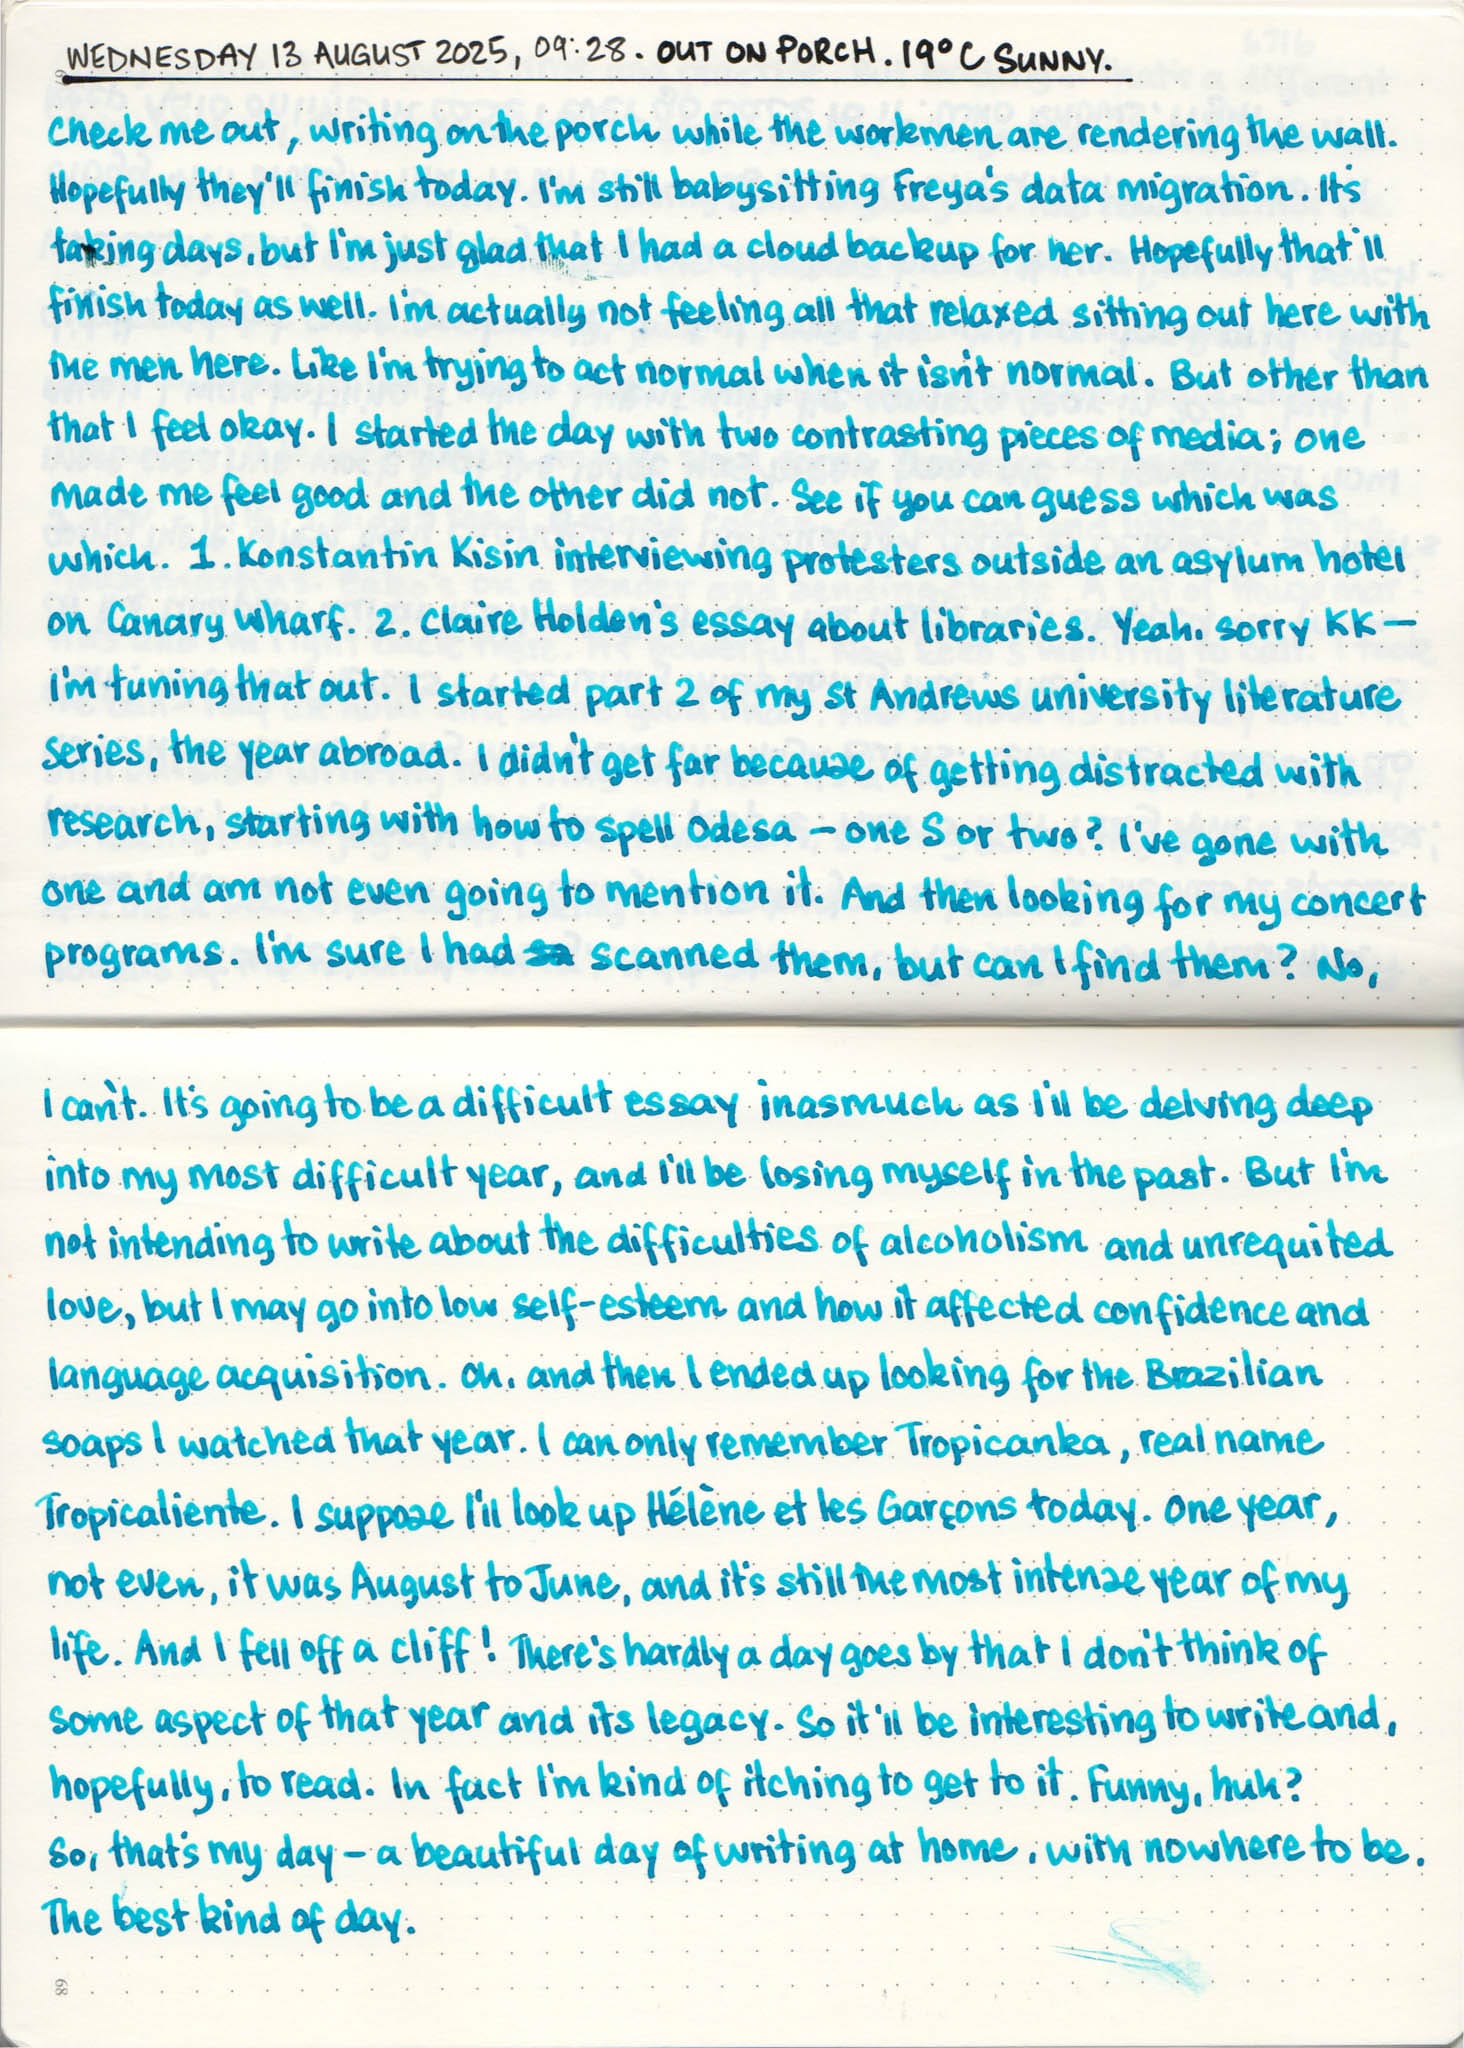 WEDNESDAY 13 AUGUST 2025, 09:28. OUT ON PORCH. 19°C SUNNY.
Check me out, writing on the porch while the workmen are rendering the wall.
Hopefully they'll finish today. I'm still babysitting Freya's data migration. It's
taking days, but I'm just glad that I had a cloud backup for her. Hopefully that'll
finish today as well. I'm actually not feeling all that relaxed sitting out here with
the men here. Like I'm trying to act normal when it isn't normal. But other than
that I feel okay. I started the day with two contrasting pieces of media; one
made me feel good and the other did not. See if you can guess which was
which. 1. Konstantin Kisin interviewing protesters outside an asylum hotel
on Canary Wharf. 2. Claire Holden's essay about libraries. Yeah, sorry KK –
I'm tuning that out. I started part 2 of my St Andrews university literature
series, the year abroad. I didn't get far because of getting distracted with
research, starting with how to spell Odesa – one S or two? I've gone with
one and am not even going to mention it. And then looking for my concert
programs. I'm sure I had sa scanned them, but can I find them? No,
I can't. It's going to be a difficult essay inasmuch as I'll be delving deep
into my most difficult year, and I'll be losing myself in the past. But I'm
not intending to write about the difficulties of alcoholism and unrequited
love, but I may go into low self-esteem and how it affected confidence and
language acquisition. Oh, and then I ended up looking for the Brazilian
soaps I watched that year. I can only remember Tropicanka, real name
Tropicaliente. I suppose I'll look up Hélène et les Garçons today. One year,
not even, it was August to June, and it's still the most intense year of my
life. And I fell off a cliff! There's hardly a day goes by that I don't think of
some aspect of that year and its legacy. So it'll be interesting to write and,
hopefully, to read. In fact I'm kind of itching to get to it. Funny, huh?
So, that's my day – a beautiful day of writing at home, with nowhere to be.
The best kind of day.
68